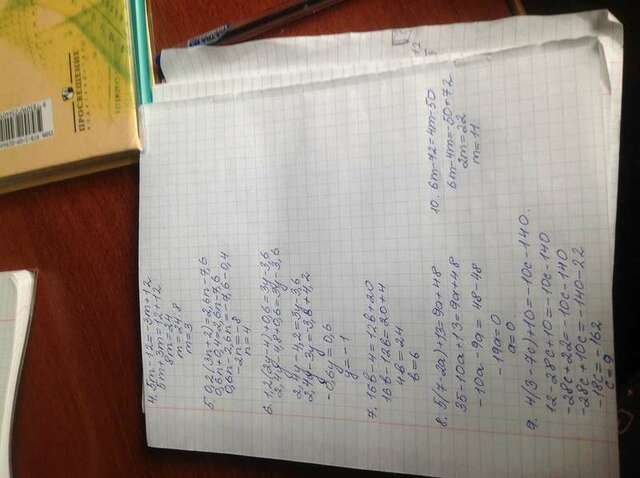 4. 5m-12=-3m+12
5m+3m=12+12
8m=24
m=24:8
m=3
5. 0,2(3n+2)=2,6n-7,6
0,6n+0,4=2,6n-7,6
0,6n-2,6n=-7,6-0,4
-2n=-8
n=4
6. 1,2(2y-4)+0,6=3y-3,6
2,4y-4,8+0,6=3y-3,6
2,4y-4,2=3y-3,6
2,4y-3y=-3,6+4,2
-0,6y=0,6
y=-1
7. 16b-4=12b+20
16b-12b=20+4
4b=24
b=6
8. 5(7-2a)+13=9a+48
35-10a+13=9a+48
-10a-9a=48-48
-19a=0
a=0
9. 4(3-7c)+10=-10c-140.
12-28c+10=-10c-140
-28c+22=-10c-140
-28c+10c=-140-22
-18c=-162
c=9
10. 6m-72=4m-50
6m-4m=-50+72
2m=22
m=11
ПРОСВЕЩЕНИЕ
ИЗДАТЕЛЬСТВО